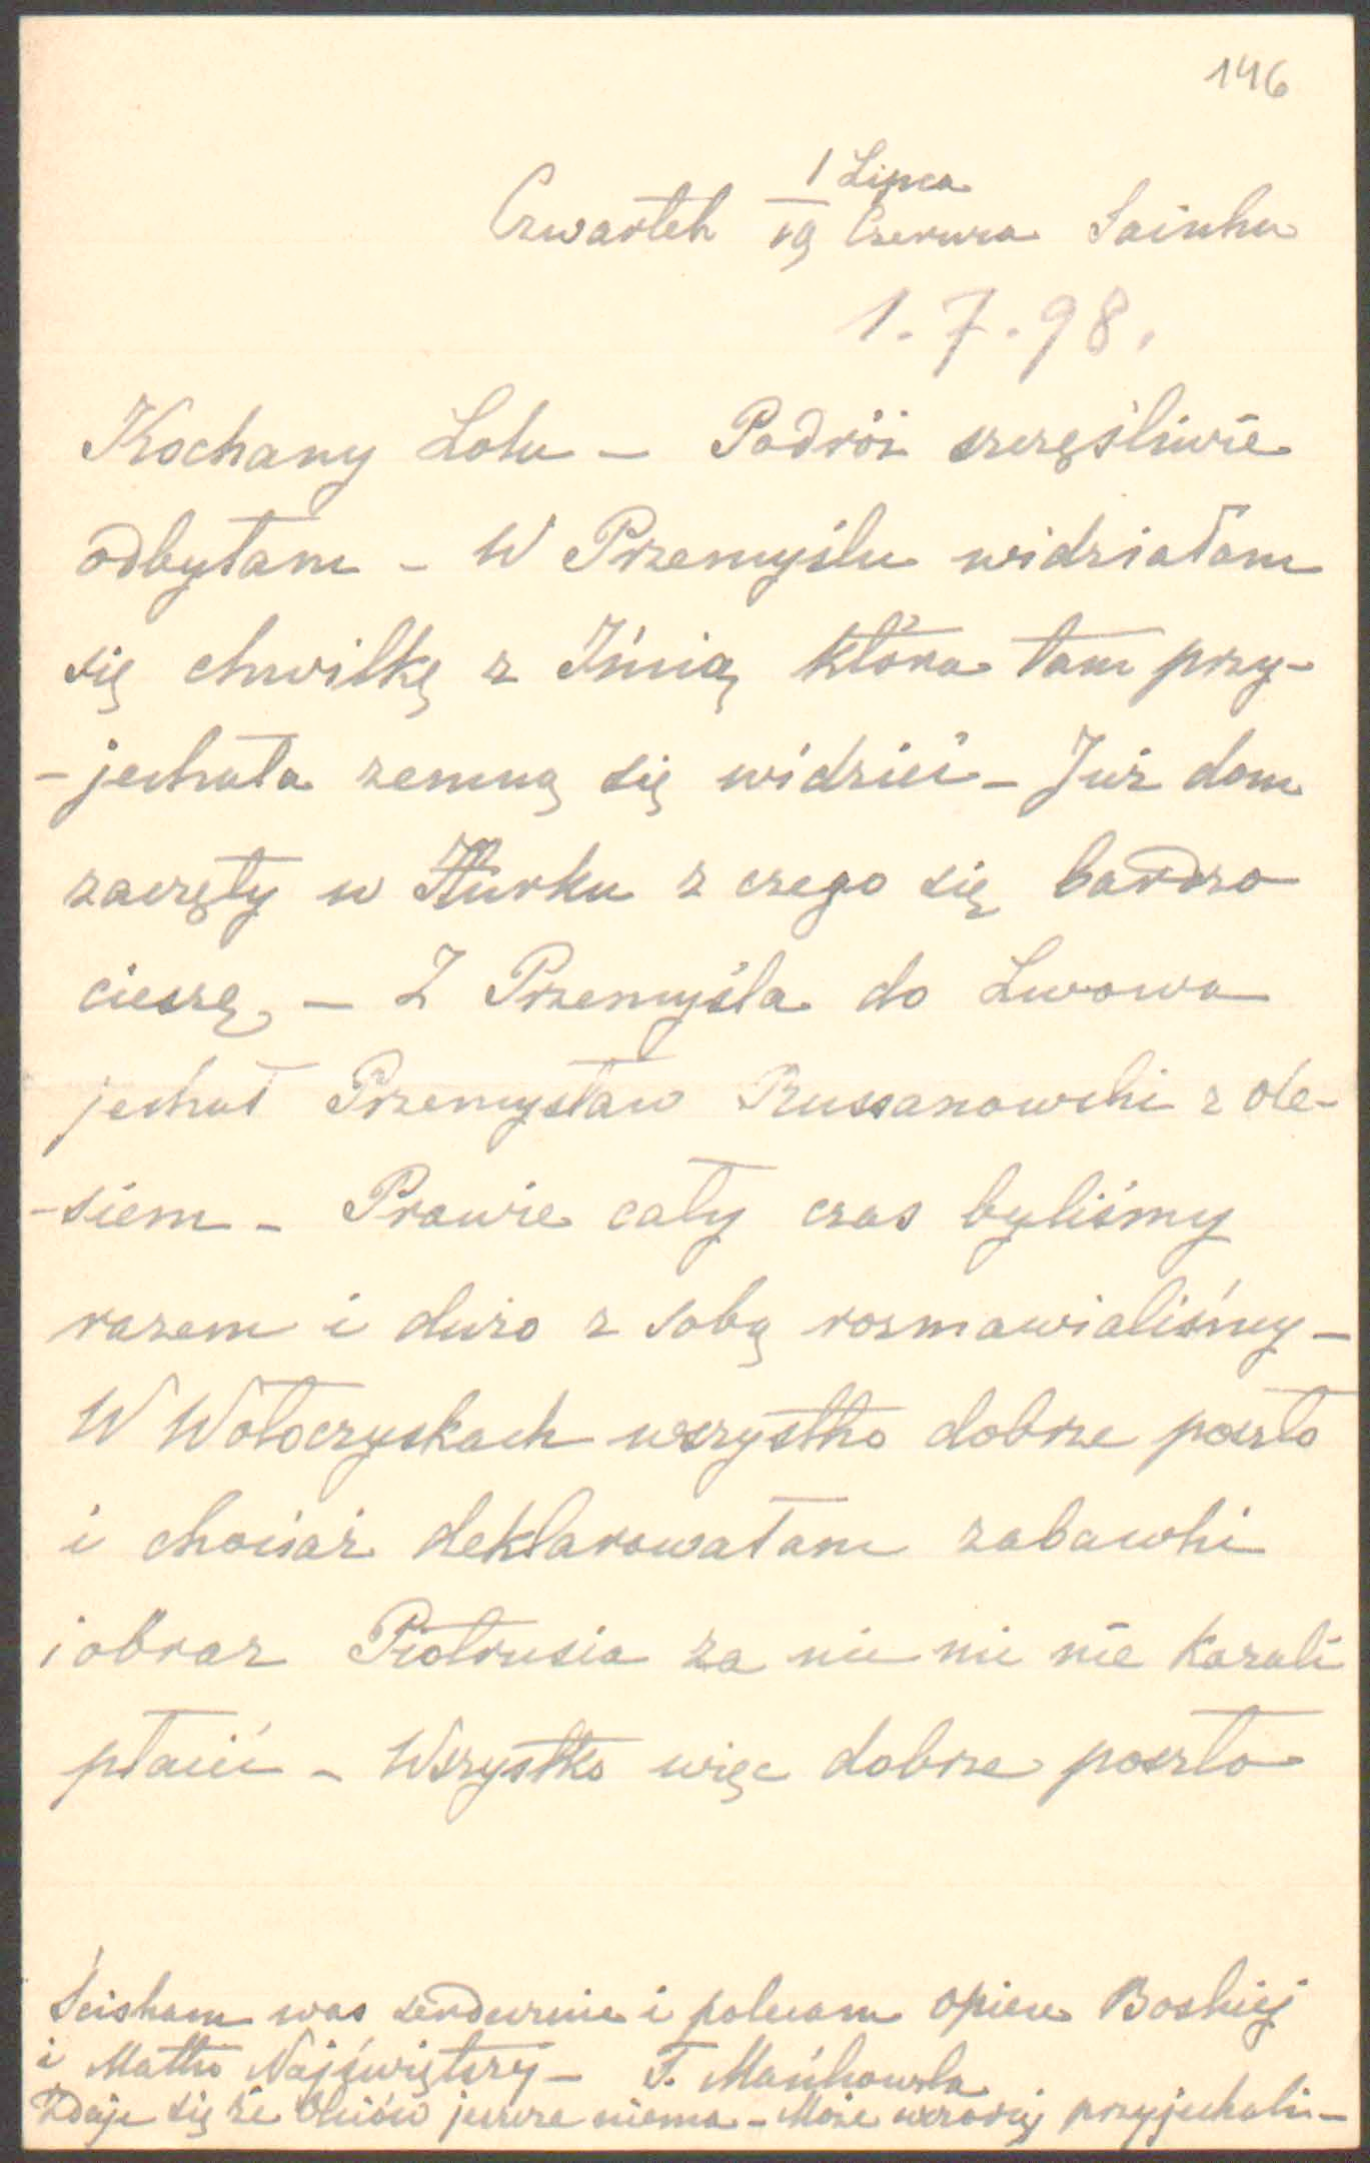 146
1 Lipca
Czwartek 19 Czerwca Sainka
1.7.98.
Kochany Lolu – Podróż szczęśliwie
odbyłam – W Przemyślu widziałam
się chwilkę z Imią która tam przy-
-jechała zemną się widzieć – Już dom
zaczęty w Hurku z czego się bardzo
cieszę – Z Przemyśla do Lwowa
jechał Przemysław Russanowski z Ole-
-siem – Prawie cały czas byliśmy
razem i dużo z sobą rozmawialiśmy –
W Wołoczyskach wszystko dobrze poszło
i chociaż deklarowałam zabawki
i obraz Piotrusia za nic nic nie kazali
płacić – Wszystko więc dobrze poszło
Ściskam was serdecznie i polecam opiece Boskiej
i Matko Najświętszej – T. Mańkowska
Zdaje się że Olesiów jeszcze niema – Może wczoraj przyjechali –